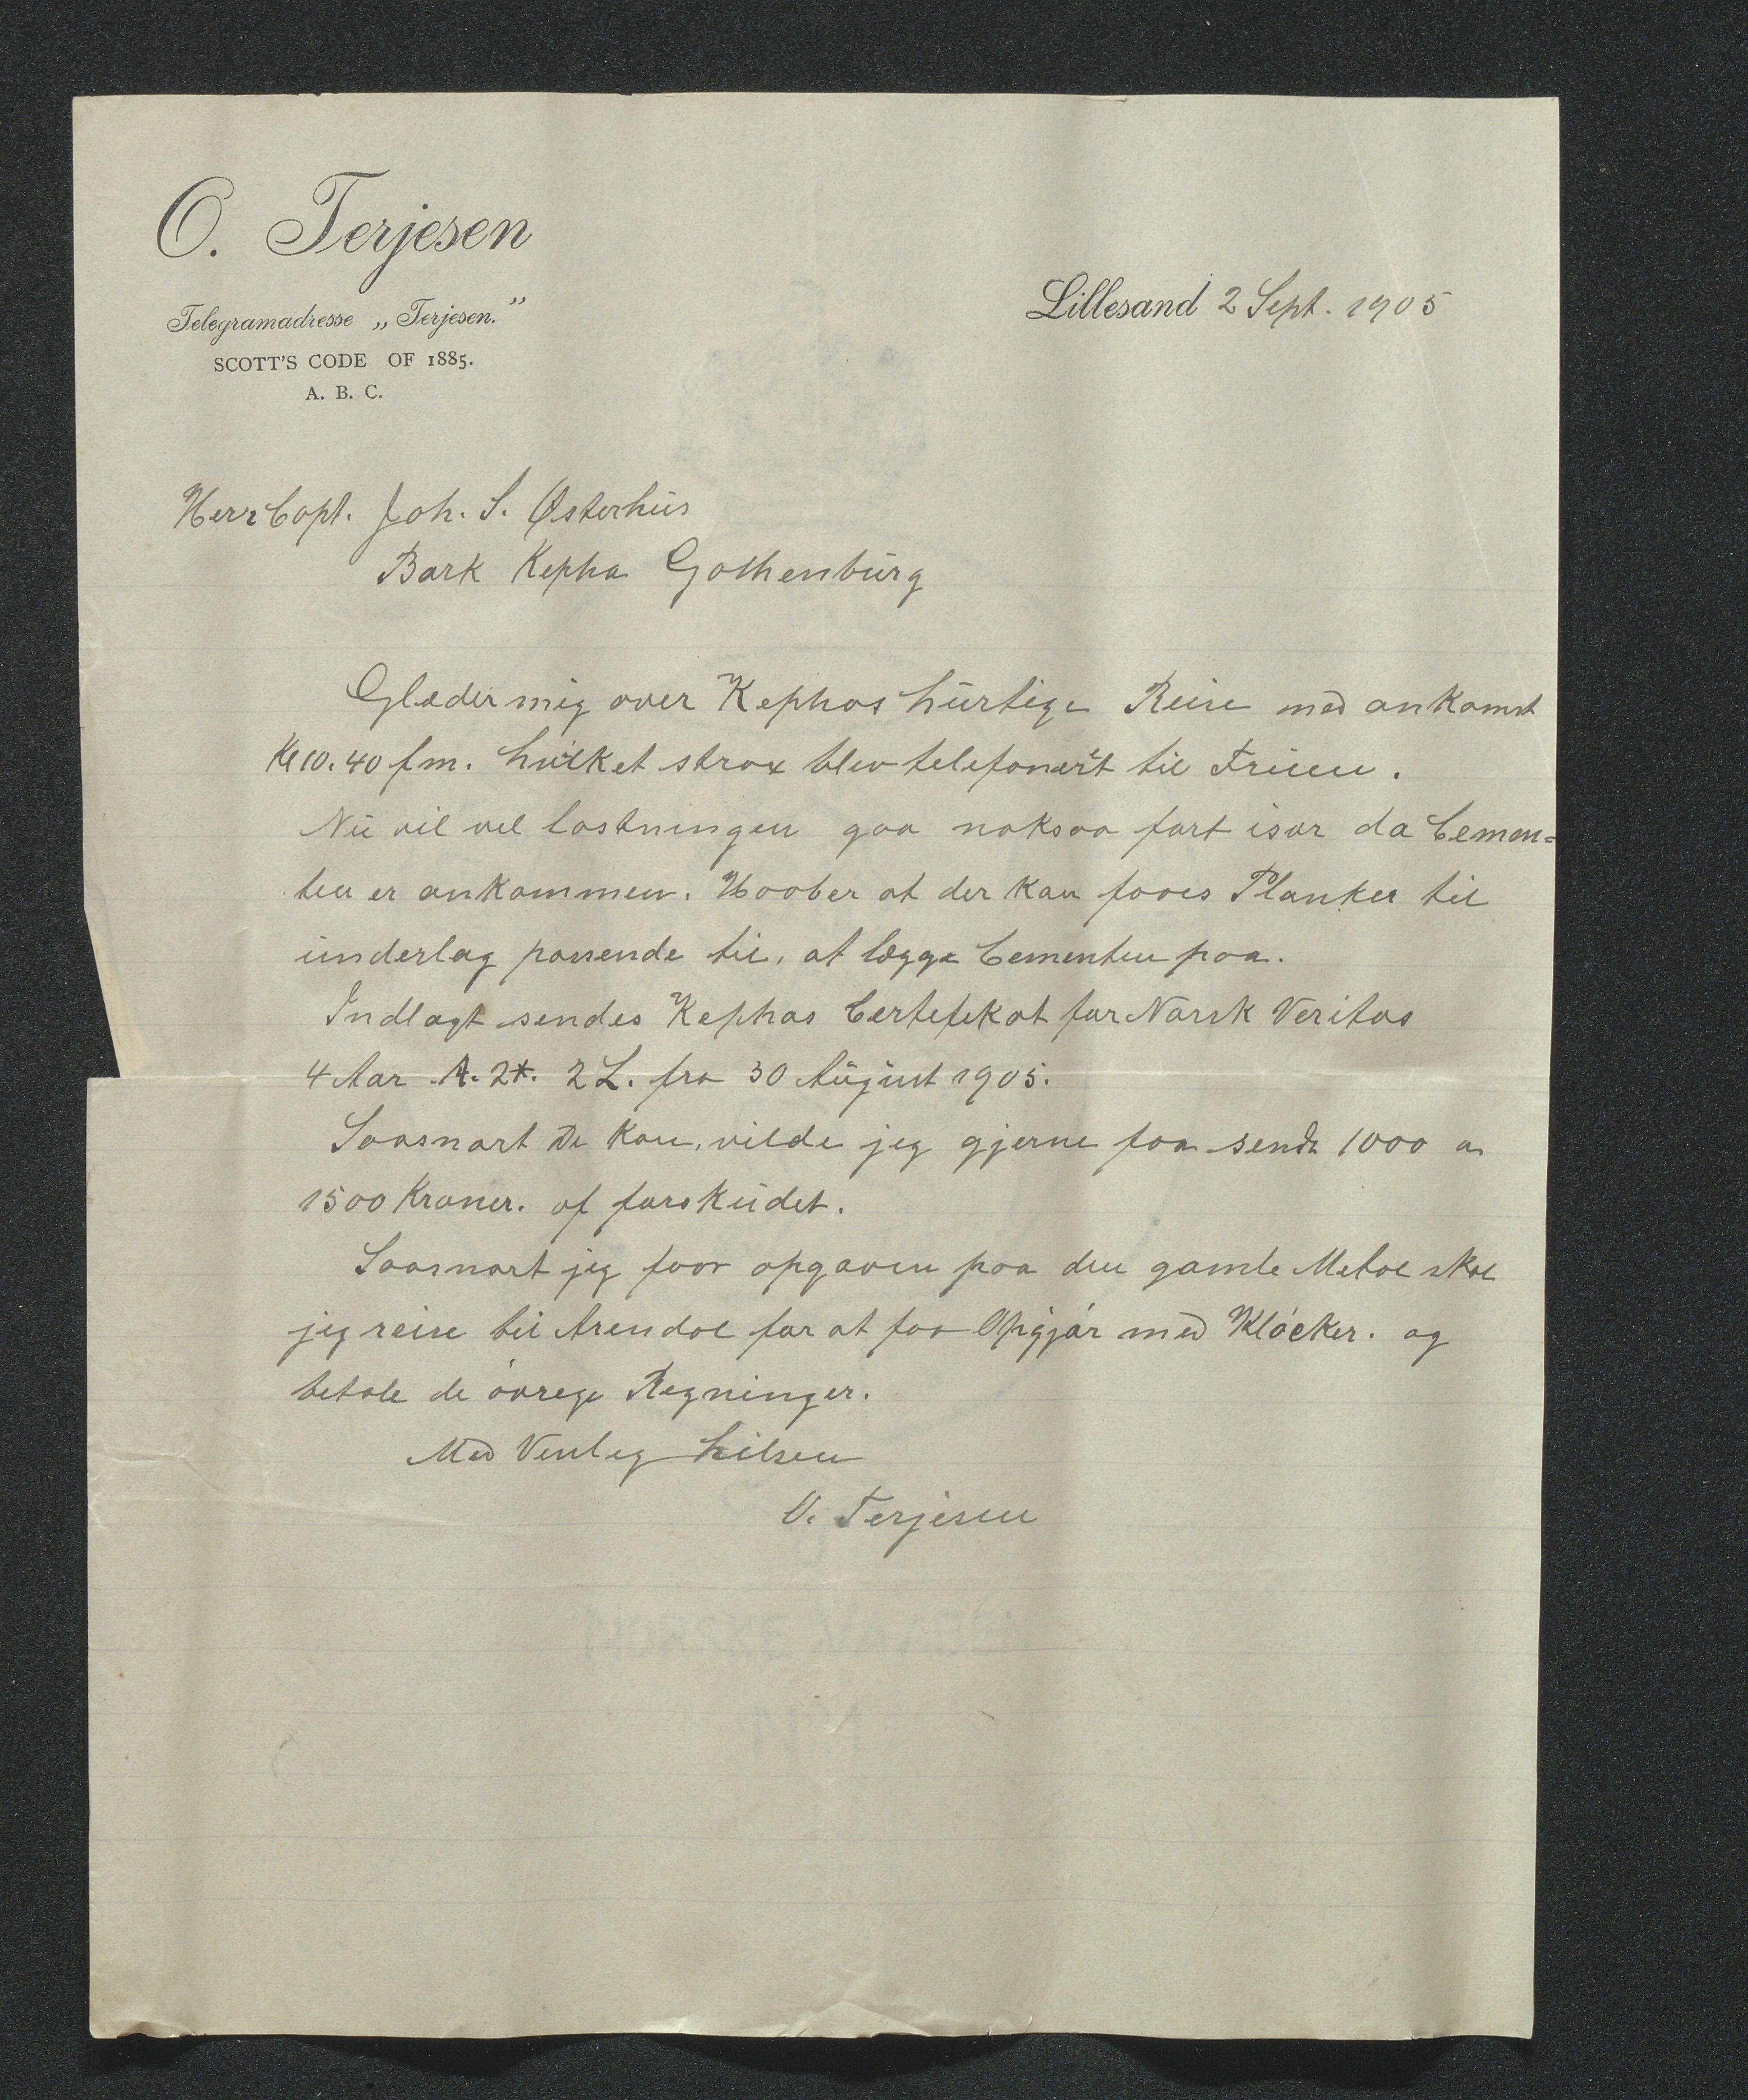 O. Terjesen
Telegramadresse „Terjesen.”
SCOTT'S CODE OF 1885.
A. B. C.
Lillesand 2 Sept. 1905
Herr Capt. Joh. S. Østerhus
Bark Kepha Gothenburg
Glæder mig over Kephas hurtige Reise med ankomst
Kl 10.40 fm. hvilket strax blev telefonert til Fruen.
Nu vil vel lastningen gaa noksaa fort især da Cemen=
ten er ankommen. Haaber at der kan faaes Planker til
underlag passende til, at lægge Cementen paa.
Indlagt sendes Kephas Certefekat for Norsk Veritas
4 Aar A. 2*. 2 L. fra 30 August 1905.
Saasnart De kan, vilde jeg gjerne faa sendt 1000 a
1500 Kroner. af forskudet.
Saasnart jeg faar opgaven paa den gamle Metal skal
jeg reise til Arendal for at faa Opgjør med Kløcker. og
betale de øvrege Regninger.
Med Venleg hilsen
O. Terjesen